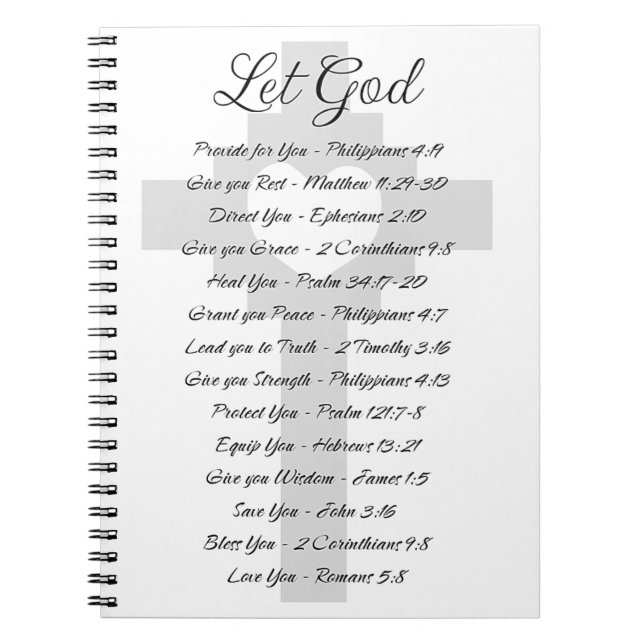 Let God
Provide for You - Philippians 4:19
Give you Rest - Matthew 11:29-30
Direct You - Ephesians 2:10
Give you Grace - 2 Corinthians 9:8
Heal You - Psalm 34:17-20
Grant you Peace - Philippians 4:7
Lead you to Truth - 2 Timothy 3:16
Give you Strength - Philippians 4:13
Protect You - Psalm 121:7-8
Equip You - Hebrews 13:21
Give you Wisdom - James 1:5
Save You - John 3:16
Bless You - 2 Corinthians 9:8
Love You - Romans 5:8